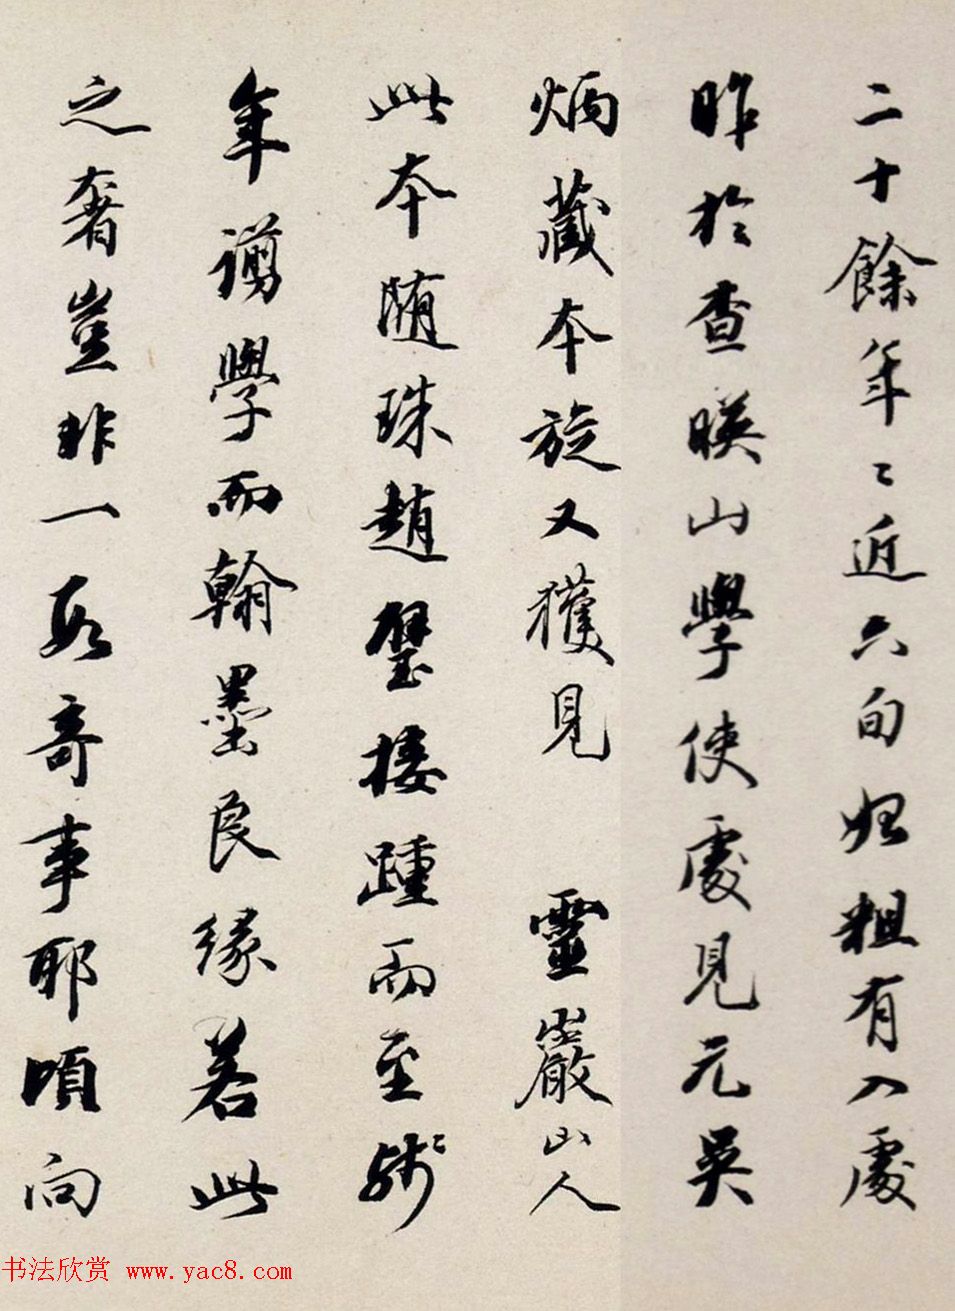 二十餘年〻近六旬始粗有入處
昨於查暎山學使處見元吳
炳藏本旋又獲見 靈巖山人
此本随珠趙璧接踵而至殘〻
年謭學而翰墨良緣若此
之奢豈非一段奇事耶頃向
书法欣赏 www.yac8.com